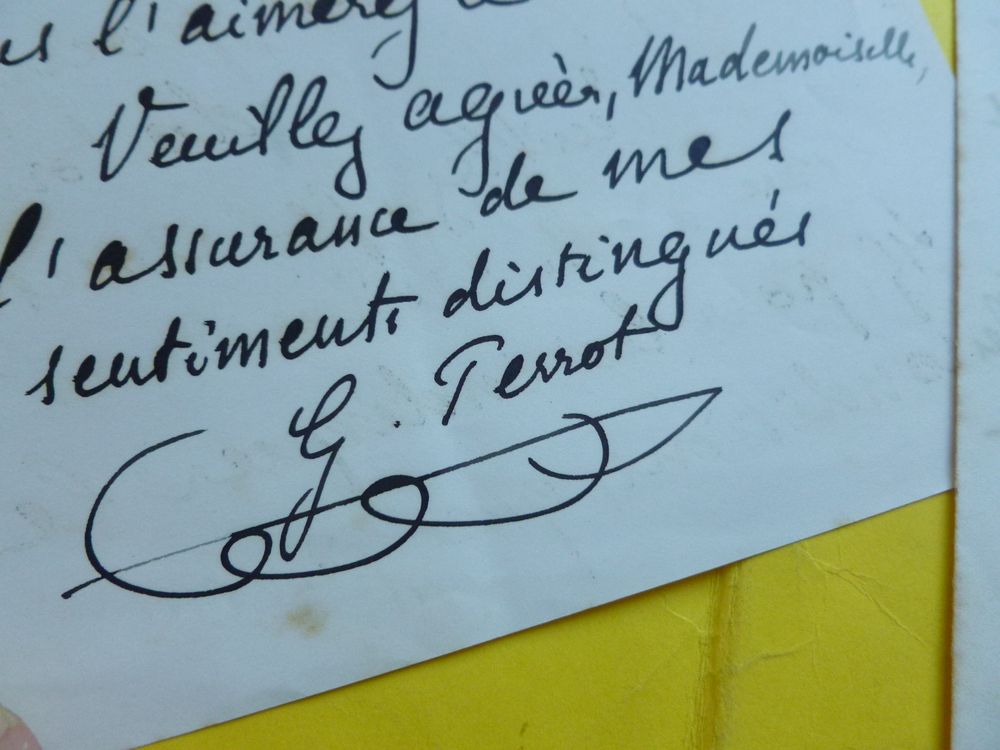 l'aimerez
Veuillez agréer, Mademoiselle,
l'assurance de mes
sentiments distingués
G. Perrot